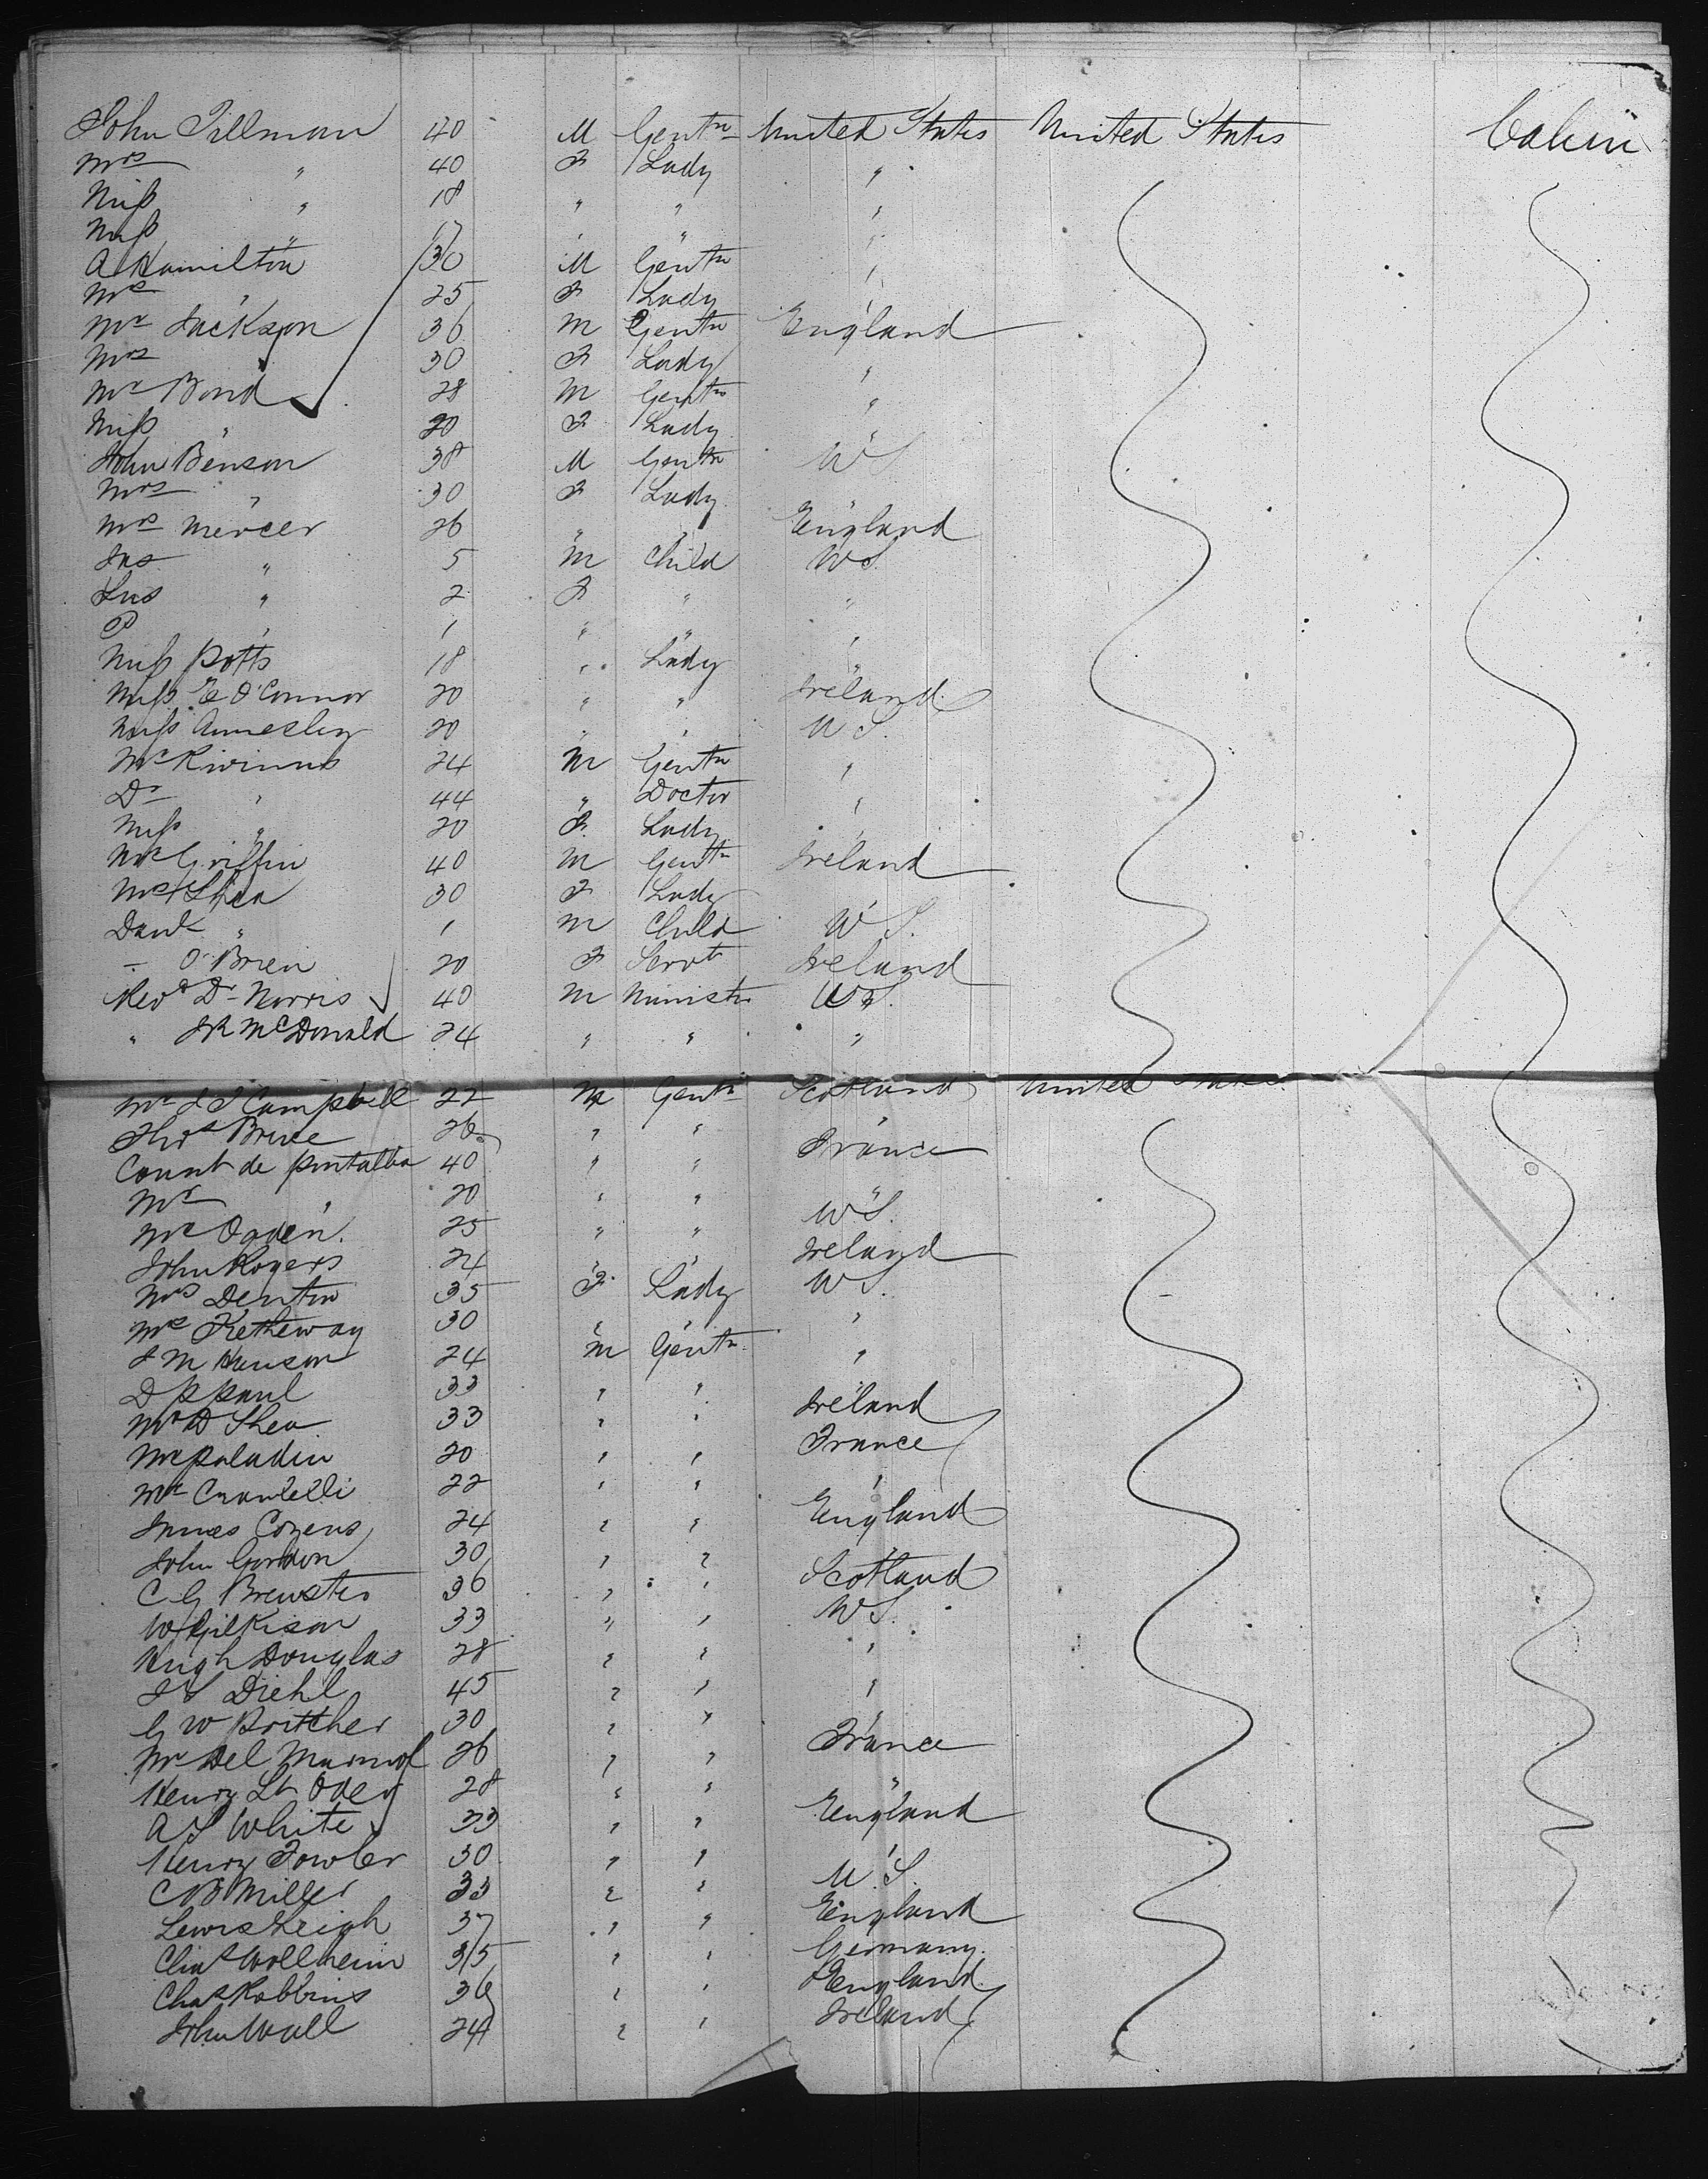 John Tillman 40 M Gentn United States United States Cabin
Mrs " 40 F Lady "
Miss " 18 " " "
Miss " 17 " " "
A Hamilton 30 M Gentn "
Mrs " 25 F Lady "
Mr Jackson 36 M Gentn England
Mrs " 30 F Lady "
Mr Bond 28 M Gentn "
Miss " 20 F Lady "
John Benson 38 M Gentn U S
Mrs " 30 F Lady "
Mrs Mercer 26 " " England
Jas " 5 M Child U S.
" 2 F " "
P " 1 " " "
Miss Potts 18 " Lady "
Miss E O'Connor 20 " " Ireland
Miss Annesley 20 " " U S.
Mr Rivinus 24 M Gentn "
Dr " 44 " Doctor "
Miss " 20 F. Lady "
Mr Griffin 40 M Gentn Ireland
Mrs Shea 30 F Lady "
Danl " 1 M Child U S.
- O'Brien 20 F Servt Ireland
Revd Dr Norris 40 M Ministr U S.
" J R McDonald 24 " " "
Mr J S Campbell 22 M Gentn Scotland United States.
Thos Brice 26 " " "
Count de Pontalba 40 " " France
Mr " 20 " " "
Mr Ogden. 25 " " U S.
John Rogers 24 " " Ireland
Mrs Denton 35 F. Lady U S.
Mrs Tretheway 30 " " "
J M Hanson 24 M Gentn "
D P Paul 33 " " "
Mr D Shea 33 " " Ireland
Mr Paladin 20 " " France
Mr 22 " " "
James Cozens 24 " " England
John Gordon 30 " " "
C G Brewster 36 " " Scotland
W Gilkison 33 " " U S.
Hugh Douglas 28 " " "
J S Diehl 45 " " "
G W Britcher 30 " " "
Mr Del Marmol 26 " " France
Henry St Oder 28 " " "
A S White 33 " " England
Henry Fowler 30 " " "
C B Miller 33 " " U. S.
Lewis Leigh 37 " " England
Chas Wollheim 35 " " Germany.
Chas Robbins 36 " " England.
John Wall 24 " " Ireland